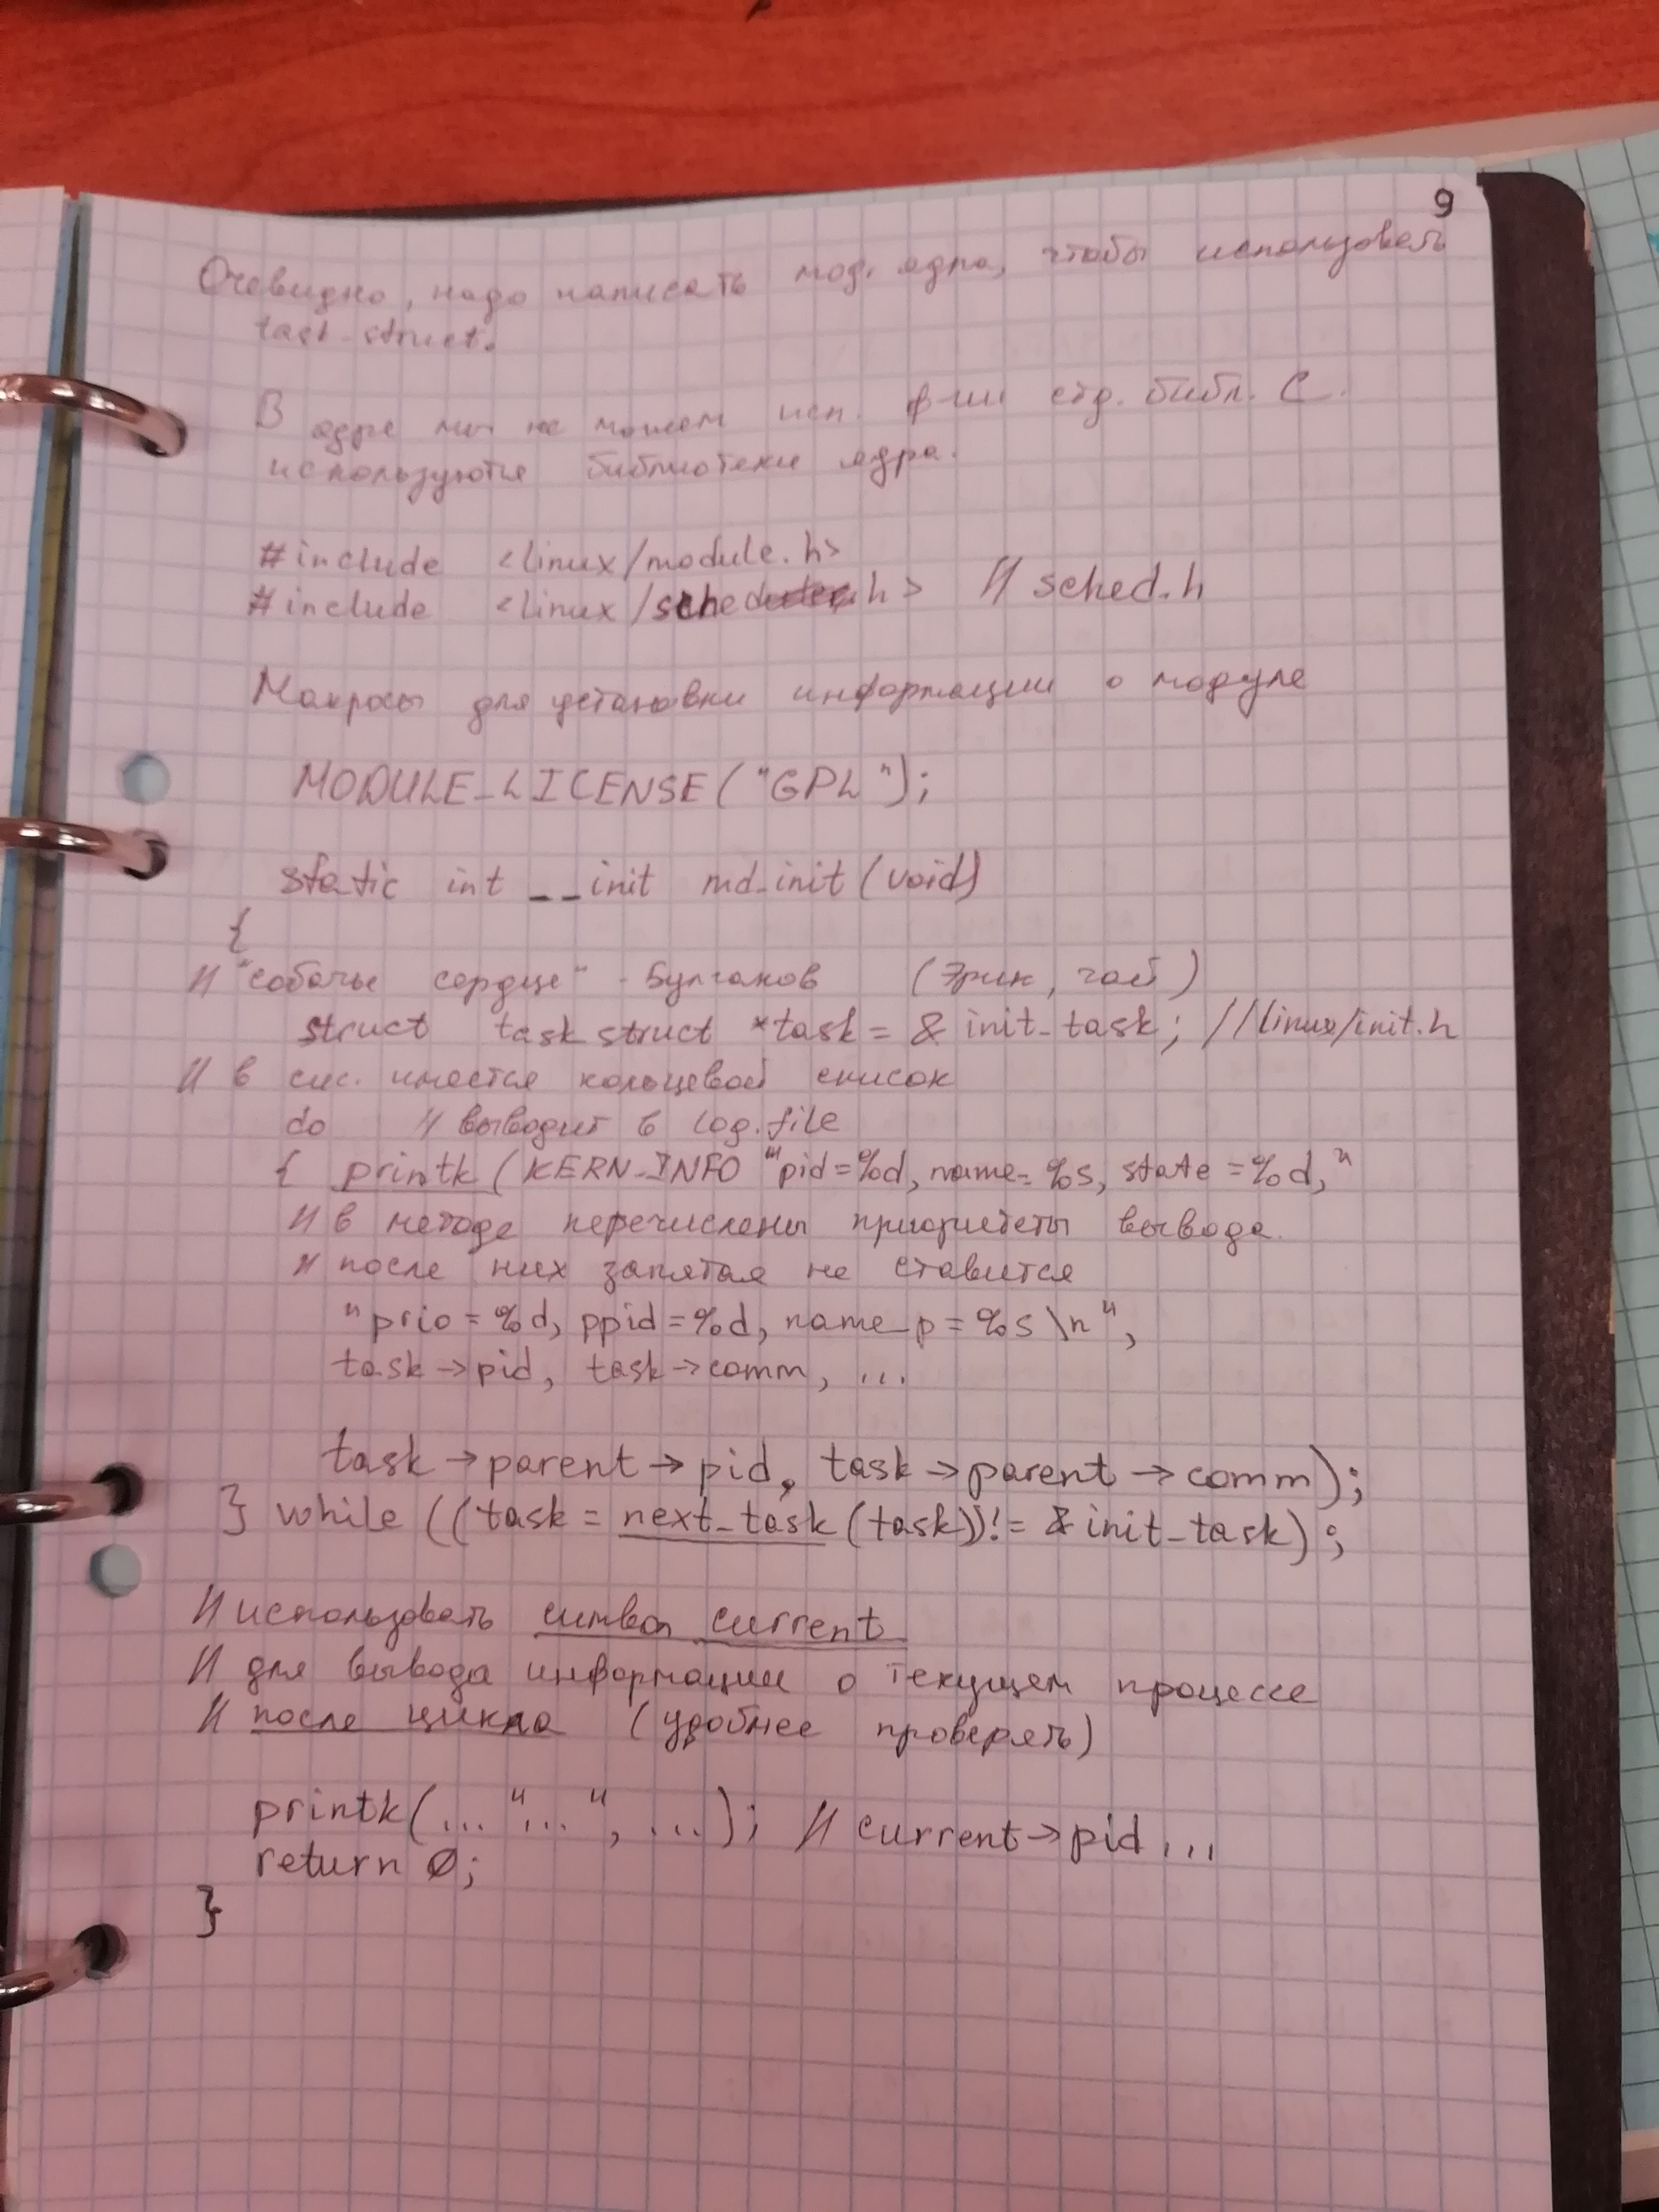 9
Очевидно, надо написать мод. ядра, чтобы использовать
task_struct.
В ядре мы не можем исп. ф-ии стд. библ. С.
используются библиотеки ядра.
#include <linux/module.h>
#include <linux/sched.h> // sched.h
Макросы для установки информации о модуле
MODULE_LICENSE("GPL");
static int __init md_init(void)
{
// "собачье сердце" - Булгаков (Эрик, гой)
struct task struct *task = & init_task; //linux/init.h
// в сис. имеется кольцевой список
do // выводит в log.file
{ printk (KERN_INFO "pid=%d, name=%s, state=%d,"
// в методе перечислены приоритеты вывода.
// после них запятая не ставится
"prio=%d, ppid=%d, name_p=%s\n",
task->pid, task->comm, ...
task->parent->pid, task->parent->comm);
} while ((task = next_task (task)) != & init_task);
// использовать символ current
// для вывода информации о текущем процессе
// после цикла (удобнее проверять)
printk(... "...", ...); // current->pid...
return 0;
}